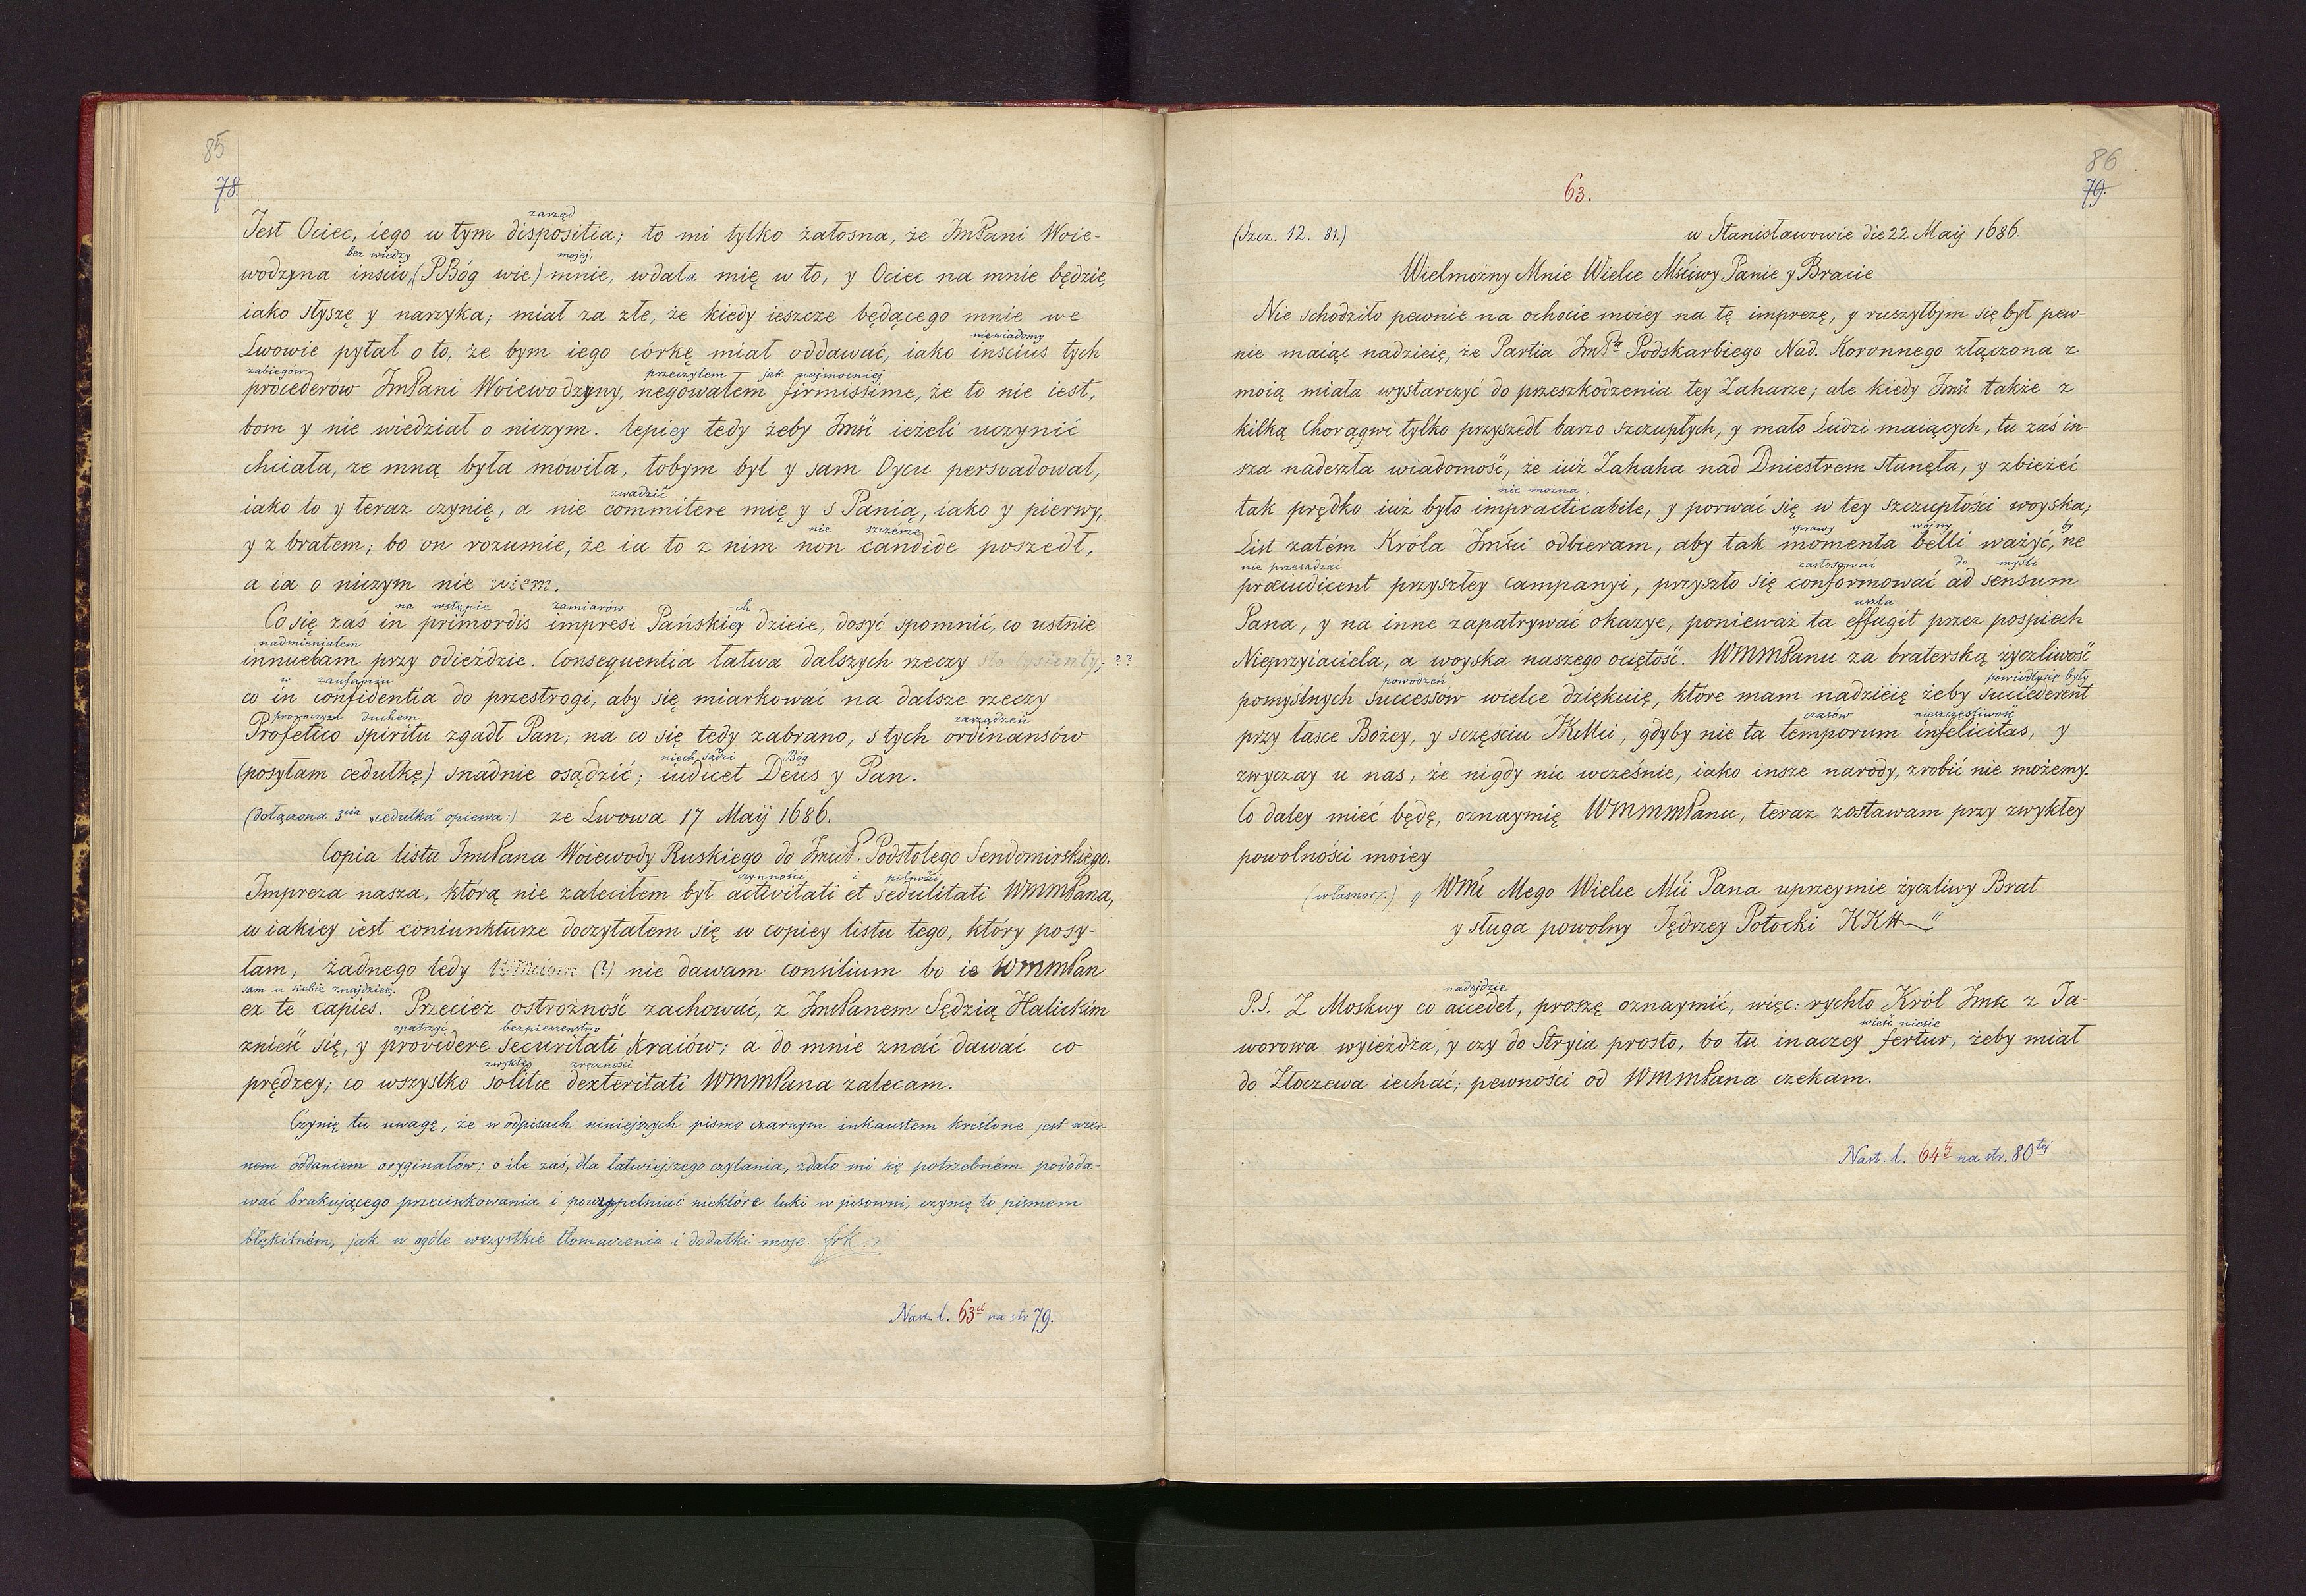 85
78.
zarząd
Jest Ociec, iego w tym dispositia; to mi tylko żałosna, że JmPani Woie-
bez wiedzy mojej,
wodzyna inscio, (PBóg wie) mnie, wdała mię w to, y Ociec na mnie będzie,
iako słyszę y narzyka; miał za złe, że kiedy ieszcze będącego mnie we
niewiadomy
Lwowie pytał o to, że bym iego córkę miał oddawać, iako inscius tych
zabiegów przeczyłem jak najmocniej
procederów JmPani Woiewodzyny, negowałem firmissime, że to nie iest,
bom y nie wiedział o niczym. lepiey tedy żeby Jmść ieżeli uczynić
chciała, ze mną była mówiła, tobym był y sam Oycu persvadował,
zwadzić
iako to y teraz czynię, a nie commitere mię y s Panią, iako y pierwy,
nie szczérze
y z bratem; bo on rozumie, że ia to z nim non candide poszedł,
a ia o niczym nie wiem.
na wstępie zamiarów ch
Co się zaś in primordis impresi Pańskiey dzieie, dosyć spomnić, co ustnie
nadmieniałem
innuebam przy odieździe. Consequentia łatwa dalszych rzeczy ; ??
w zaufaniu
co in confidentia do przestrogi, aby się miarkować na dalsze rzeczy
proroczym duchem zarządzeń
Profetico spiritu zgadł Pan; na co się tedy zabrano, s tych ordinansów
niech sądzi Bóg
(posyłam cedułkę) snadnie osądzić; iudicet Deus y Pan.
(dołączona 3cia „cedułka" opiewa:) ze Lwowa 17 Maij 1686.
Copia listu JmcPana Woiewody Ruskiego do JmciP. Podstolego Sendomirskiego.
czynności i pilności
Impreza nasza, którą nie zaleciłem był activitati et sedulitati WMMPana,
w iakiey iest coniunkturze doczytałem się w copiey listu tego, który posy-
łam; żadnego tedy (?) nie dawam consilium bo ie WMMPan
sam u siebie znajdziesz.
ex te capies. Przecież ostrożność zachować, z JmcPanem Sędzią Halickim
opatrzyć bezpieczeństwo
znieść się, y providere securitati kraiów; a do mnie znać dawać co
zwykłej zręczności
prędzey; co wszystko solitæ dexteritati WMMPana zalecam.
Czynię tu uwagę, że w odpisach niniejszych pismo czarnym inkaustem kreślone jest wier-
nem oddaniem oryginałów; o ile zaś, dla łatwiejszego czytania, zdało mi się potrzebném pododa-
wać brakującego przecinkowania i powypełniać niektóre luki w pisowni, czynię to pismem
błękitném, jak w ogóle wszystkie tłomaczenia i dodatki moje.
Nast. l. 63ci na str 79.
86
79.
63.
(Szcz. 12. 81.) w Stanisławowie die 22 Maij 1686.
Wielmożny Mnie Wielce Mściwy Panie y Bracie
Nie schodziło pewnie na ochocie moiey na tę imprezę, y ruszyłbym się był pew-
nie maiąc nadzieię, że Partia JmPa Podskarbiego Nad. Koronnego złączona z
moią miała wystarczyć do przeszkodzenia tey Zaharze; ale kiedy Jmść także z
kilką Chorągwi tylko przyszedł barzo szczupłych, y mało Ludzi maiących, tu zaś in-
sza nadeszła wiadomość, że iuż Zahaha nad Dniestrem stanęła, y zbieżeć
nie można,
tak prędko iuż było impracticabile, y porwać się w tey szczupłości woyska;
sprawy wojny by
List zatém Króla Jmści odbieram, aby tak momenta belli ważyć, ne
nie przesądzać zastosować do myśli
præiudicent przyszłey campanyi, przyszło się conformować ad sensum
uszła
Pana, y na inne zapatrywać okazye, ponieważ ta effugit przez pospiech
Nieprzyiaciela, a woyska naszego ociętość. WMMPanu za braterską życzliwość
powodzeń powiodły się były
pomyślnych successów wielce dziękuię, które mam nadzieię żeby succederent
czasów nieszczęśliwość
przy łasce Bożey, y sczęściu JKMci, gdyby nie ta temporum infelicitas, y
zwyczay u nas, że nigdy nic wcześnie, iako insze narody, zrobić nie możemy.
Co daley mieć będę, oznaymię WMMMPanu, teraz zostawam przy zwykłey
powolności moiey
(własnorz.) „ WMci Mego Wielce Mci Pana uprzeymie życzliwy Brat
y sługa powolny Jędrzey Potocki KKH "
nadejdzie
P.S. Z Moskwy co accedet, proszę oznaymić, więc: rychło Król Jmsc z Ja-
wieść niesie
worowa wyieżdża, y czy do Stryia prosto, bo tu inaczey fertur, żeby miał
do Złoczewa iechać; pewności od WMMPana czekam.
Nast. l. 64ty na str. 80tej